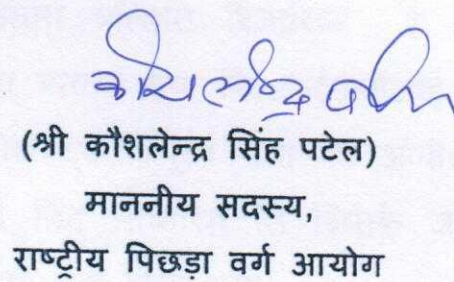 (श्री कौशलेन्द्र सिंह पटेल)
माननीय सदस्य,
राष्ट्रीय पिछड़ा वर्ग आयोग